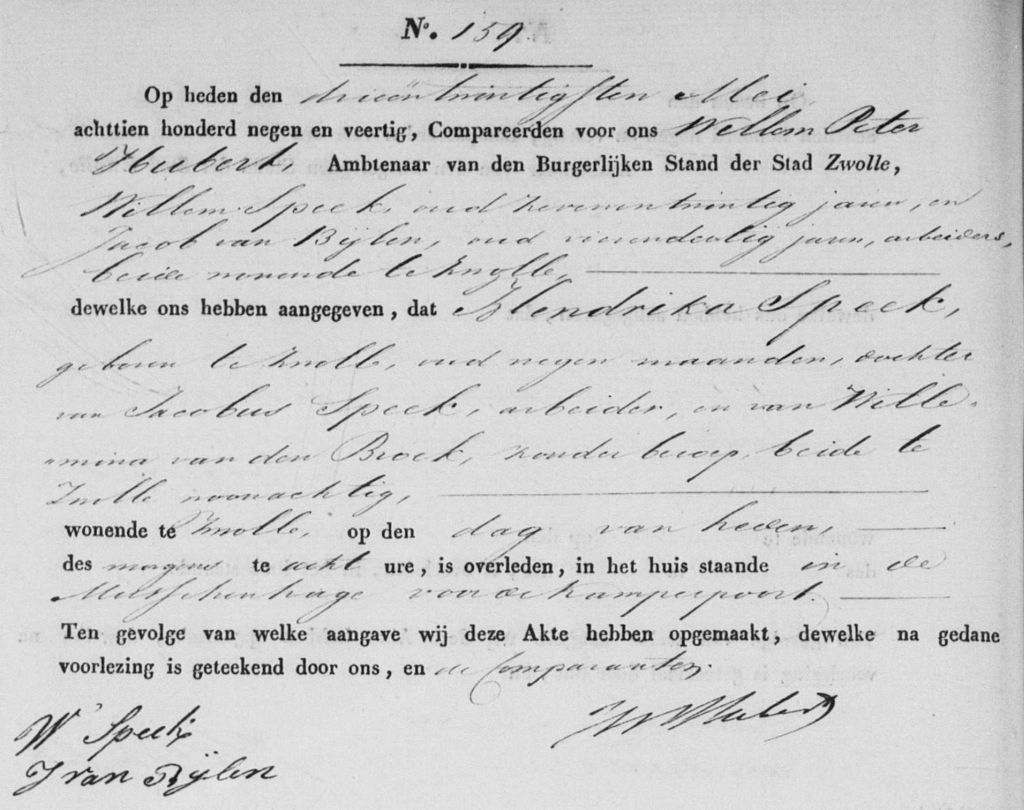 N°. 159.
Op heden den drieentwintigsten Mei
achttien honderd negen en veertig, Compareerden voor ons Willem Peter
Hubert Ambtenaar van den Burgerlijken Stand der Stad Zwolle,
Willem Speek, oud zevenentwintig jaren, en
Jacob van Bijlen, oud vierendertig jaren, arbeiders,
beide wonende te Zwolle,
dewelke ons hebben aangegeven, dat Hendrika Speek,
geboren te Zwolle, oud negen maanden, dochter
van Jacobus Speek, arbeider, en van Wille-
mina van den Broek, zonder beroep, beide te
Zwolle woonachtig,
wonende te Zwolle, op den dag van heden,
des morgens te acht ure, is overleden, in het huis staande in de
Musschenhage voor de Kamperpoort.
Ten gevolge van welke aangave wij deze Akte hebben opgemaakt, dewelke na gedane
voorlezing is geteekend door ons, en de Comparanten.
W Speek
J van Bijlen
WPHubert